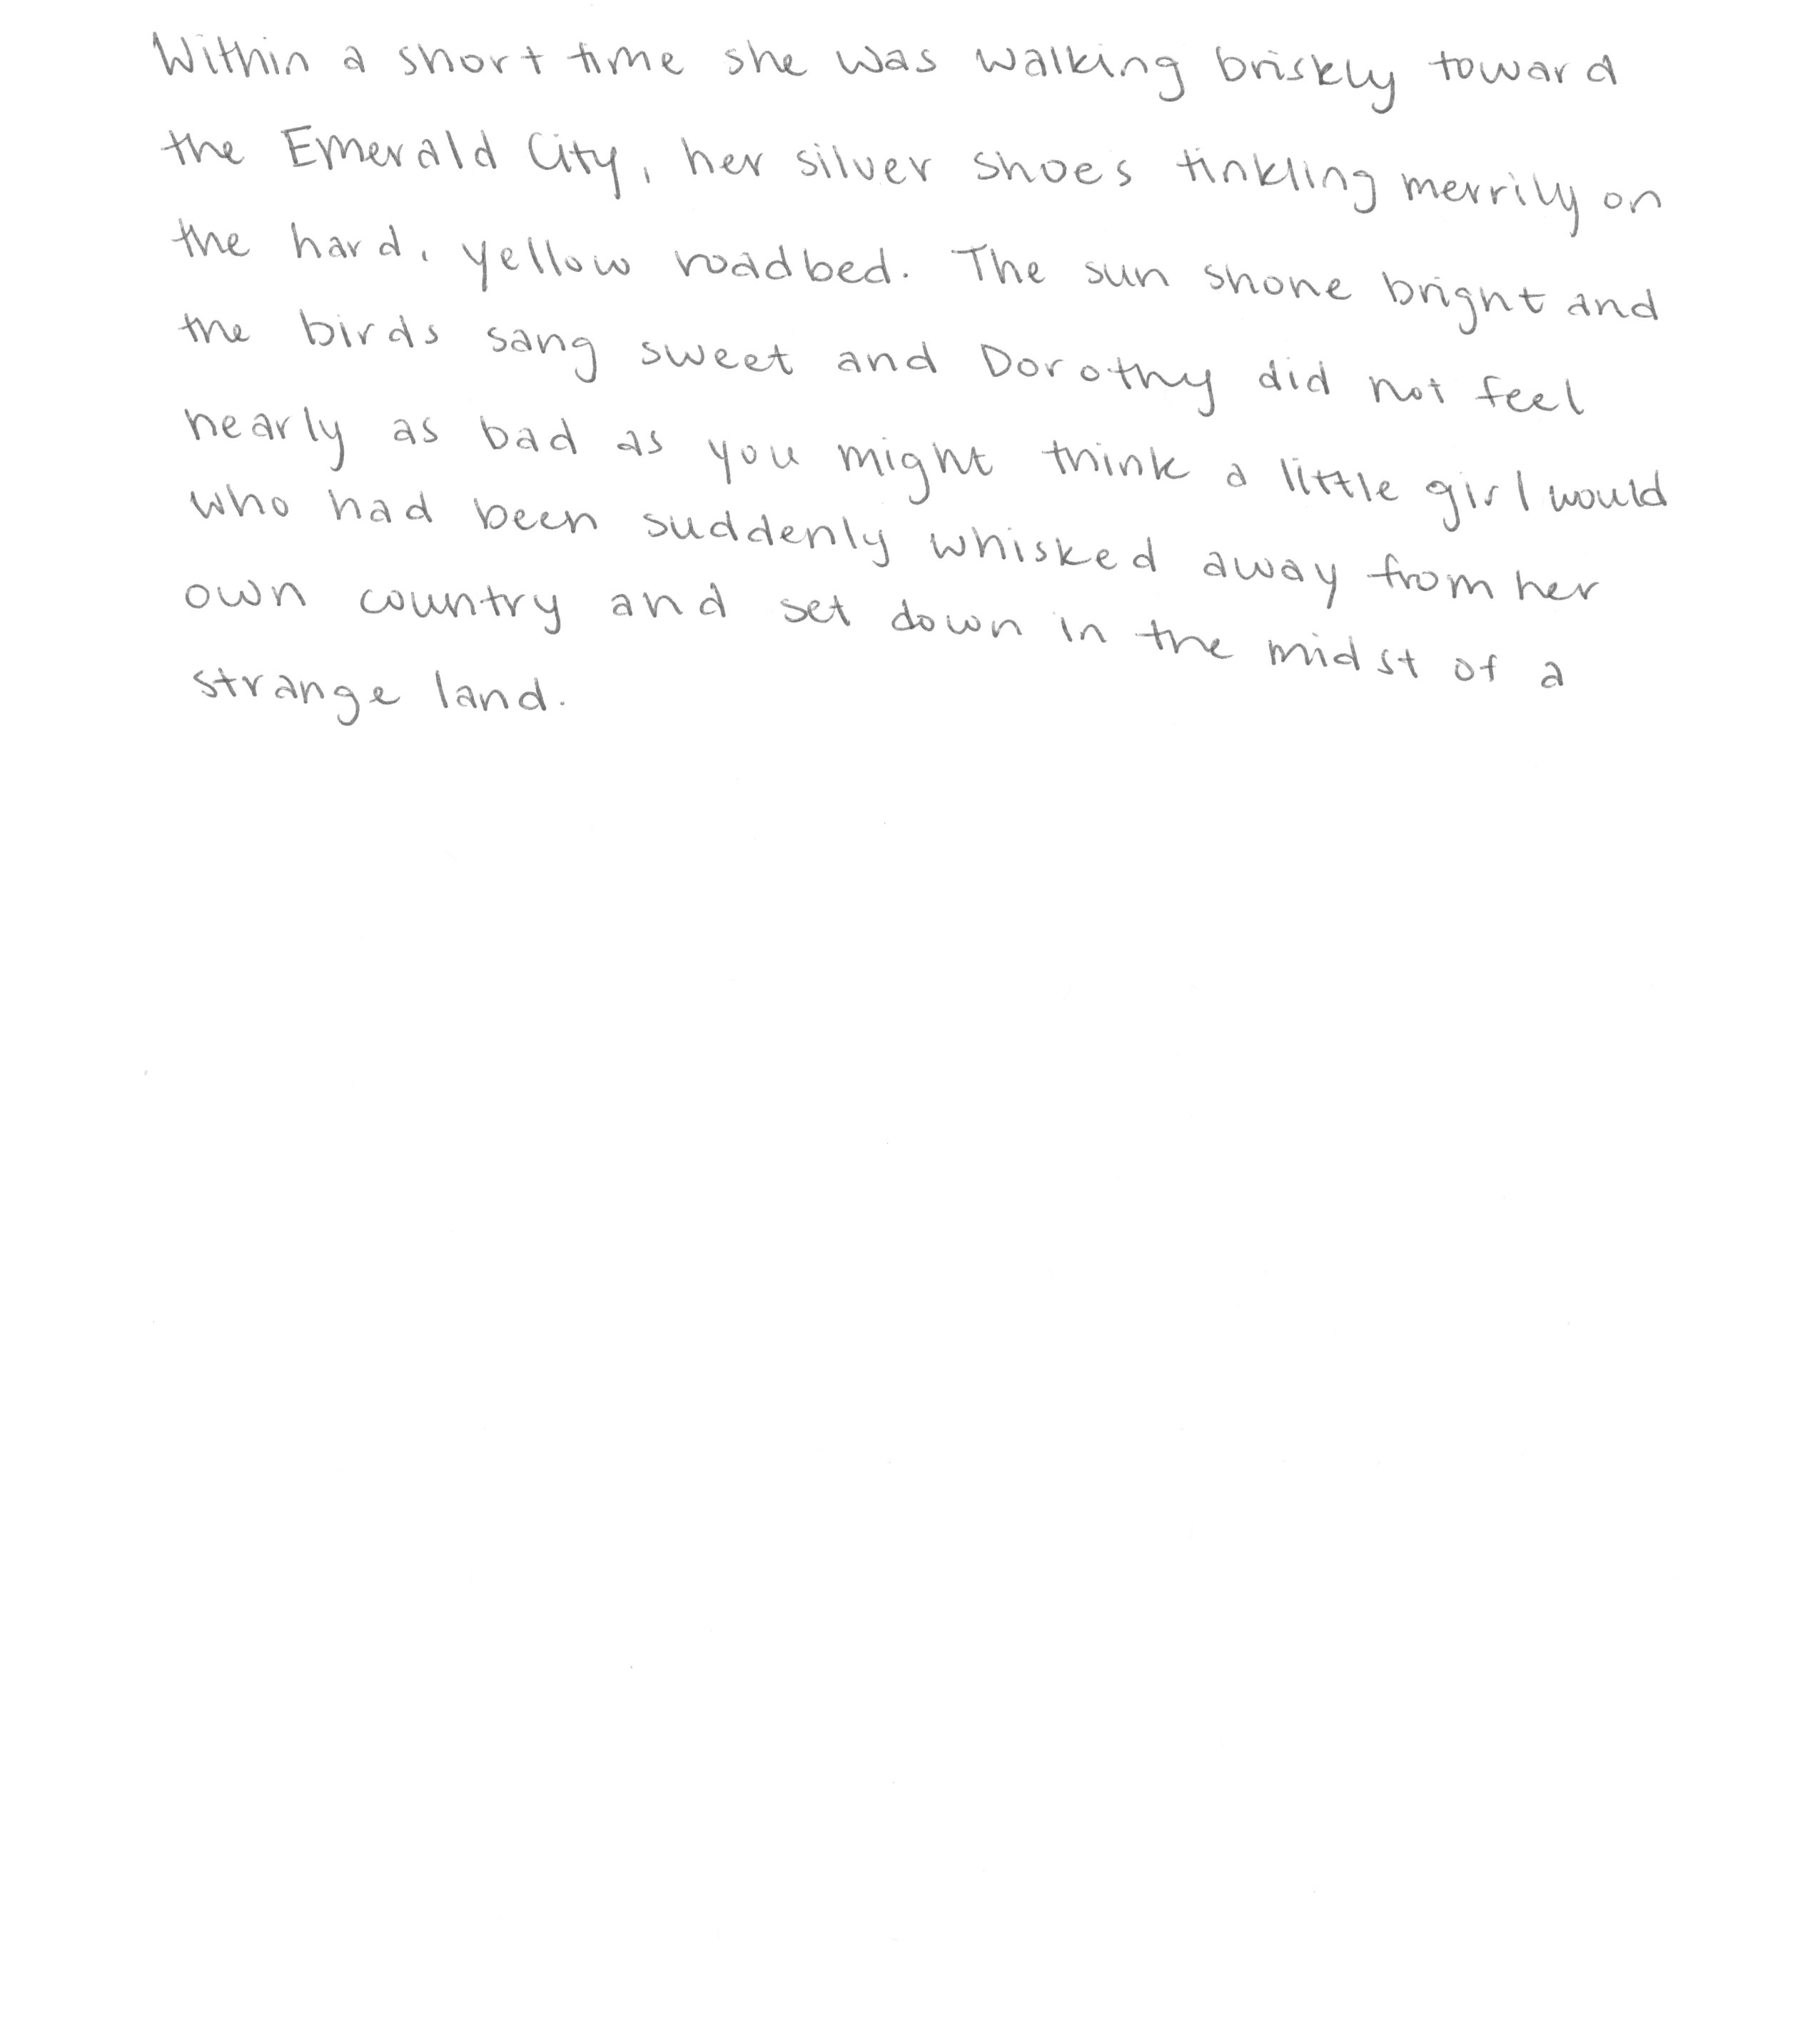 Within a short time she was walking briskly toward
the Emerald City, her silver shoes tinkling merrily on
the hard, yellow roadbed. The sun shone bright and
the birds sang sweet and Dorothy did not feel
nearly as bad as you might think a little girl would
who had been suddenly whisked away from her
own country and set down in the midst of a
strange land.